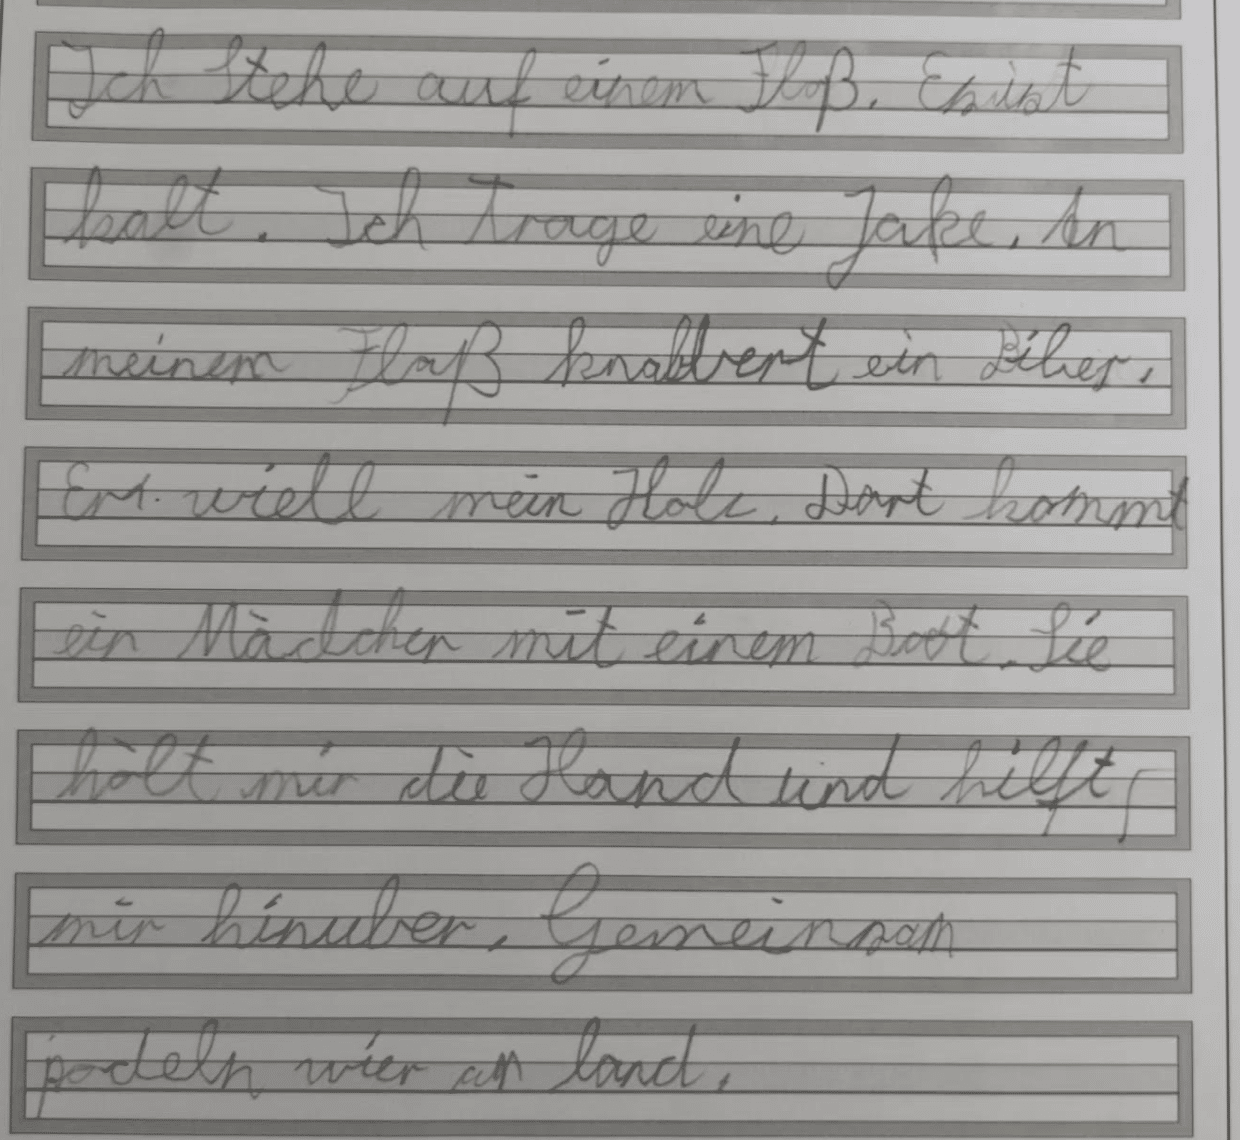 Ich Stehe auf einem Floß. Es ist
kalt. Ich Trage eine Jake. An
meinem Floß knabbert ein Biber.
Er. wiell mein Holz. Dort kommt
ein Mädchen mit einem Boot. Sie
hält mir die Hand und hilft
mir hinuber. Gemeinsam
padeln wier an land.